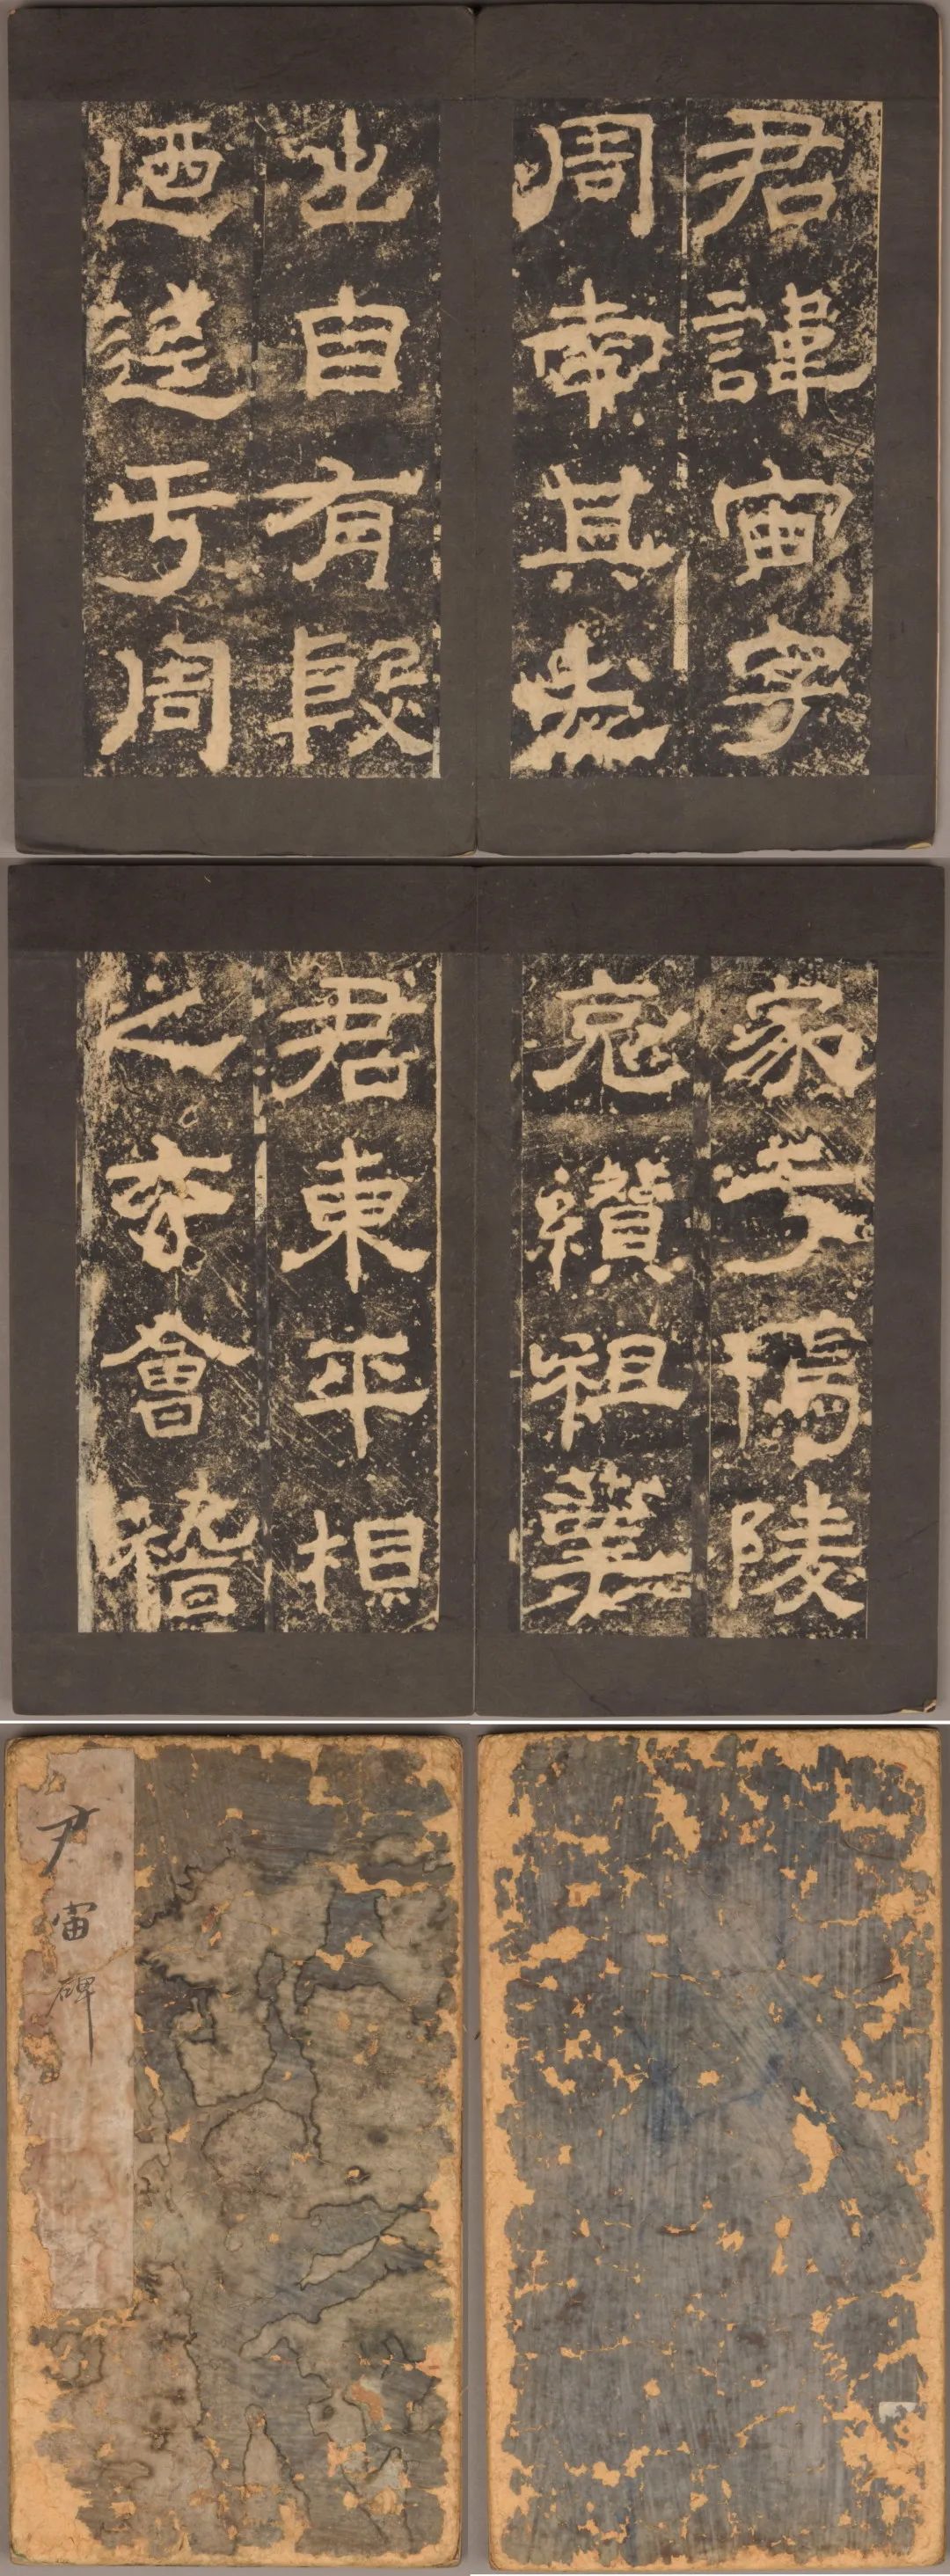 君諱宙字
周南其先
出自有殷
迺迄于周
家于傿陵
克纘祖業
君東平相
之玄會稽
尹宙碑